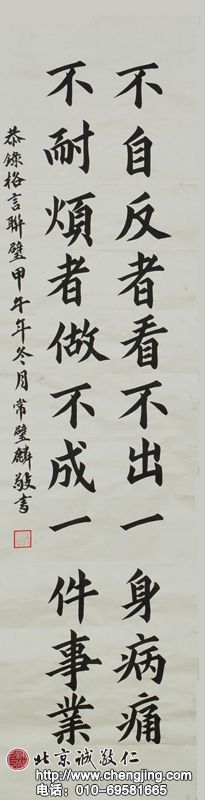 不自反者看不出一身病痛
不耐煩者做不成一件事業
恭錄格言聯璧甲午年冬月常璧麟敬書
北京誠敬仁
http://www.chengjing.com
电话：010-69581665